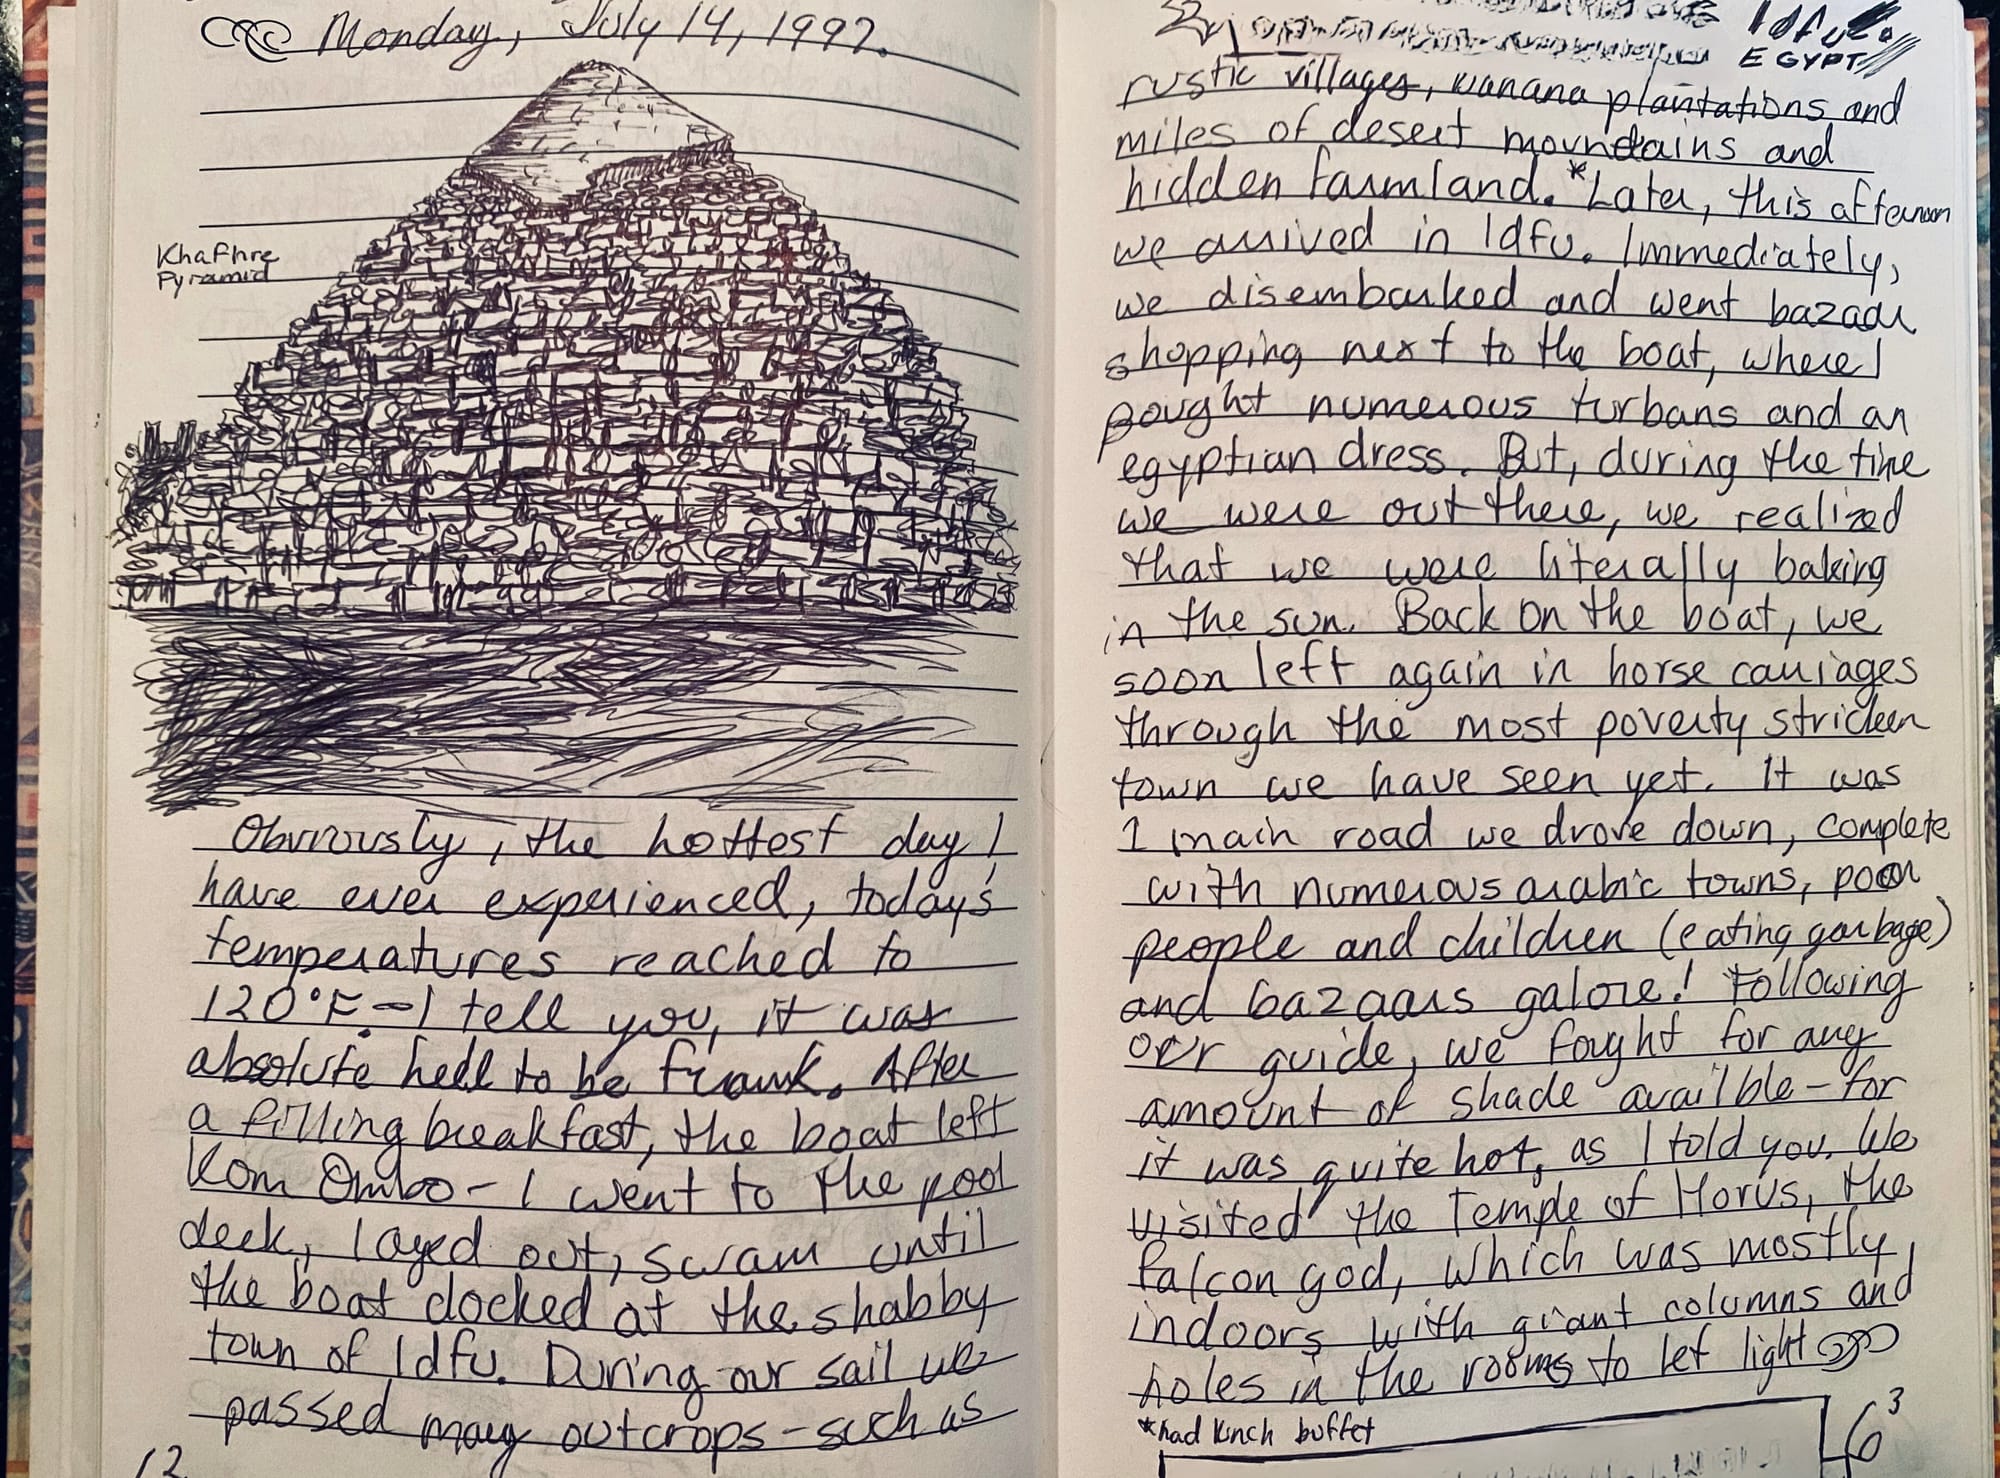 Monday, July 14, 1997.
Khafhre
Pyramid
Obviously, the hottest day I
have ever experienced, today's
temperatures reached to
120°F. - I tell you, it was
absolute hell to be frank. After
a filling breakfast, the boat left
Kom Ombo - I went to the pool
deck, layed out, swam until
the boat docked at the shabby
town of Idfu. During our sail we
passed many outcrops - such as
12
Idfu
EGYPT
rustic villages, wanana plantations and
miles of desert mountains and
hidden farmland. *Later, this afternoon
we arrived in Idfu. Immediately,
we disembarked and went bazaar
shopping next to the boat, where I
bought numerous turbans and an
egyptian dress. But, during the time
we were out there, we realized
that we were literally baking
in the sun. Back on the boat, we
soon left again in horse carriages
through the most poverty stricken
town we have seen yet. It was
1 main road we drove down, complete
with numerous arabic towns, poor
people and children (eating garbage)
and bazaars galore! Following
our guide, we fought for any
amount of shade availble - for
it was quite hot, as I told you. We
visited the Temple of Horus, the
falcon god, which was mostly
indoors with giant columns and
holes in the rooms to let light
*had lunch buffet